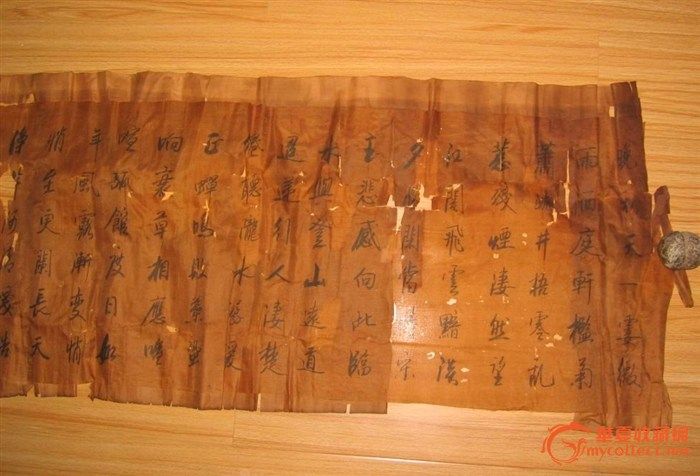 晚秋天一霎微
雨洒庭軒檻菊
蕭疎井梧零亂
惹殘煙凄然望
江關飛雲黯淡
夕間當宋
玉悲感向此臨
水與登山遠道
迢遞行人凄楚
倦聽隴水潺湲
正蟬鳴敗葉蛩
响衰草相應喧
喧孤館度日如
年風露漸變悄
悄至更闌長天
淨河清淺皓
華夏收藏網
mycollect.net